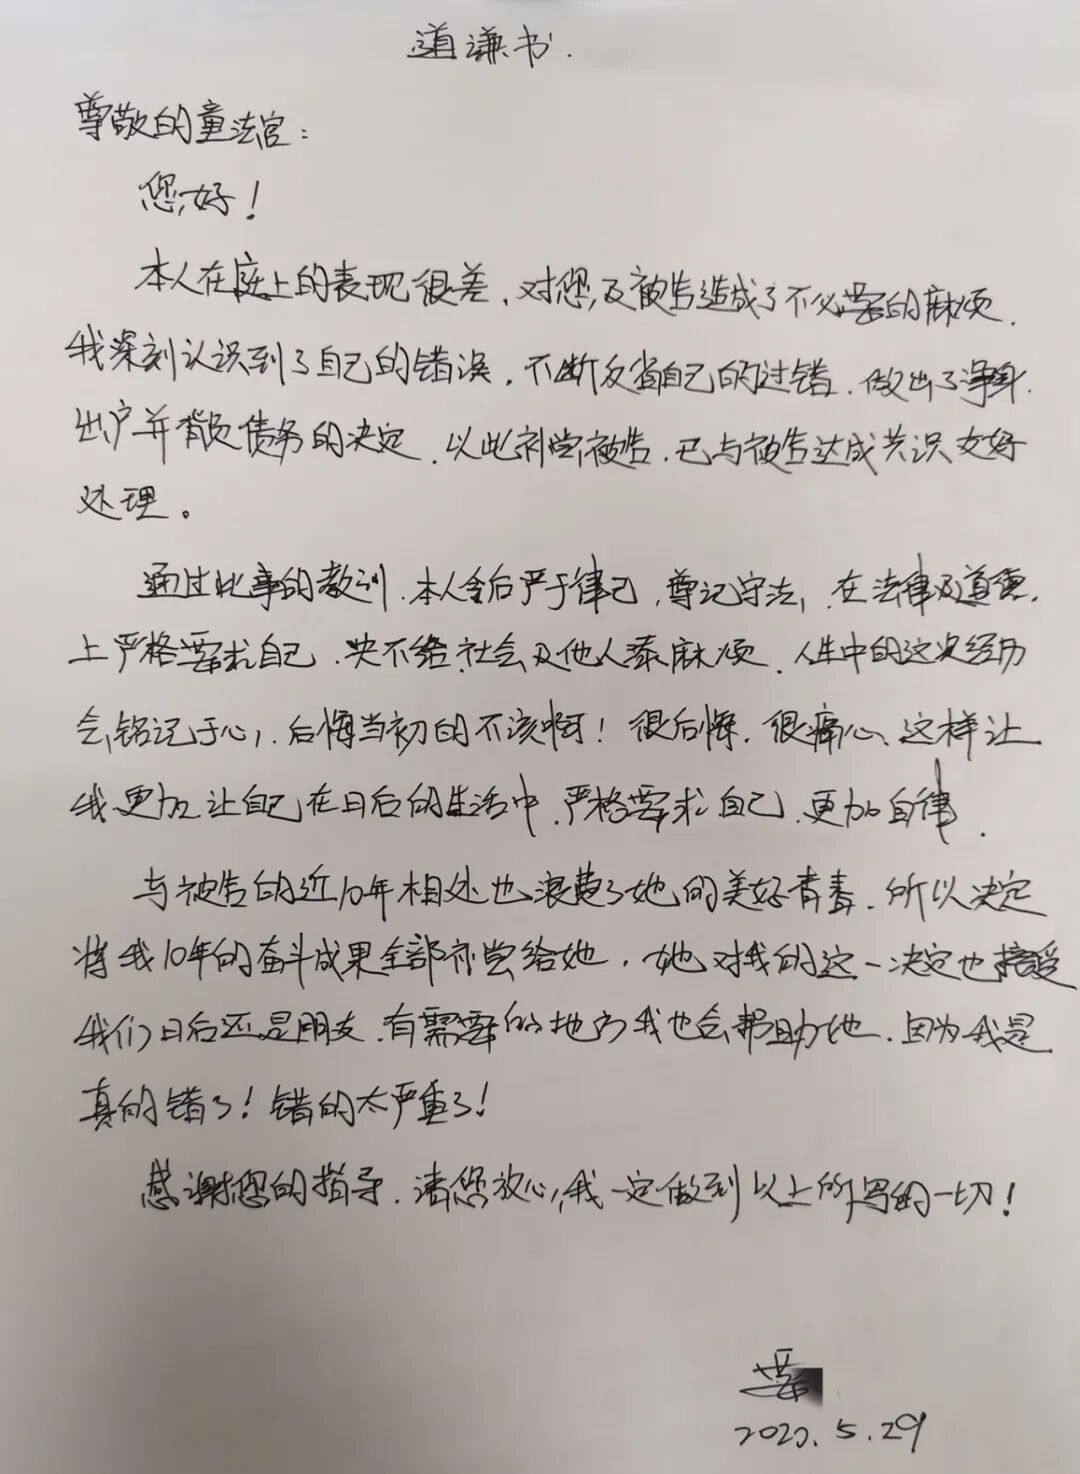 道谦书.
尊敬的童法官:
您好!
本人在庭上的表现很差.对您及被告造成了不必要的麻烦.
我深刻认识到了自己的错误.不断反省自己的过错.做出了净身.
出户并背负债务的决定.以此补偿被告.已与被告达成共识友好
处理。
通过此事的教训.本人今后严于律己.尊记守法,在法律及道德.
上严格要求自己.决不给社会及他人添麻烦.人生中的这次经历
会铭记于心,后悔当初的不该啊!很后悔.很痛心、这样让
我更加让自己在日后的生活中.严格要求自己.更加自律.
与被告的近10年相处也浪费了她的美好青春.所以决定
将我10年的奋斗成果全部补尝给她.她对我的这一决定也接受
我们日后还是朋友.有需要的地方我也会帮助她.因为我是
真的错了!错的太严重了!
感谢您的指导.请您放心,我一定做到以上所写的一切!
2020.5.29